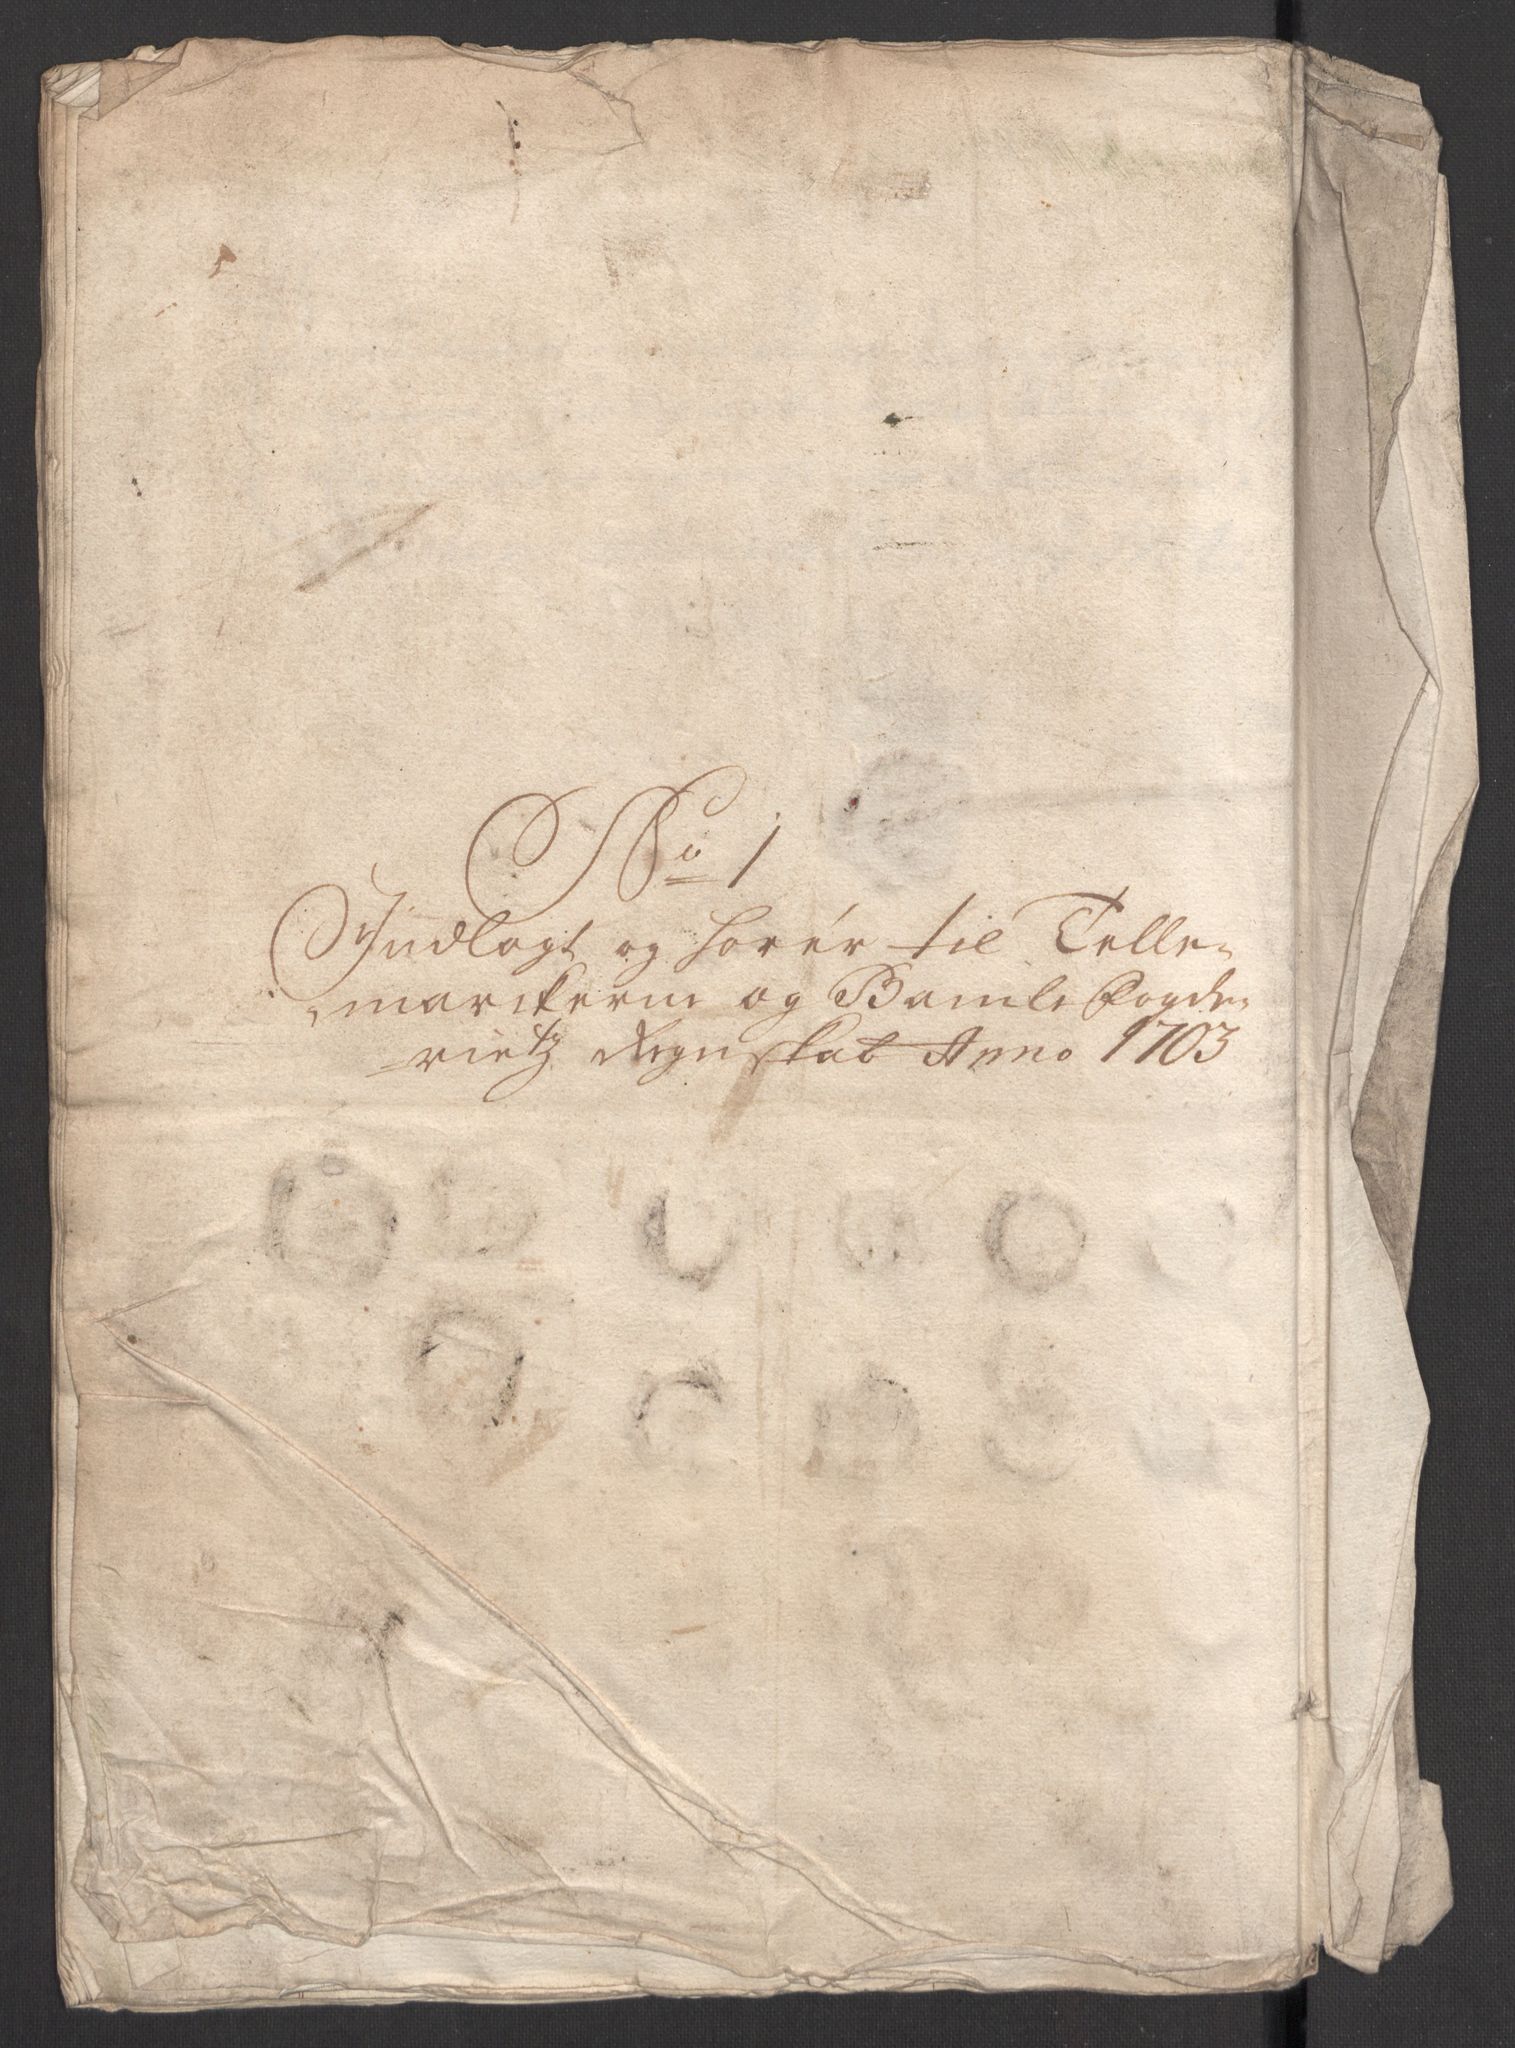 No 1
Indlagt og hører til Telle-
marckerne og Bamle fogde-
rietz Regnskab Anno 1703